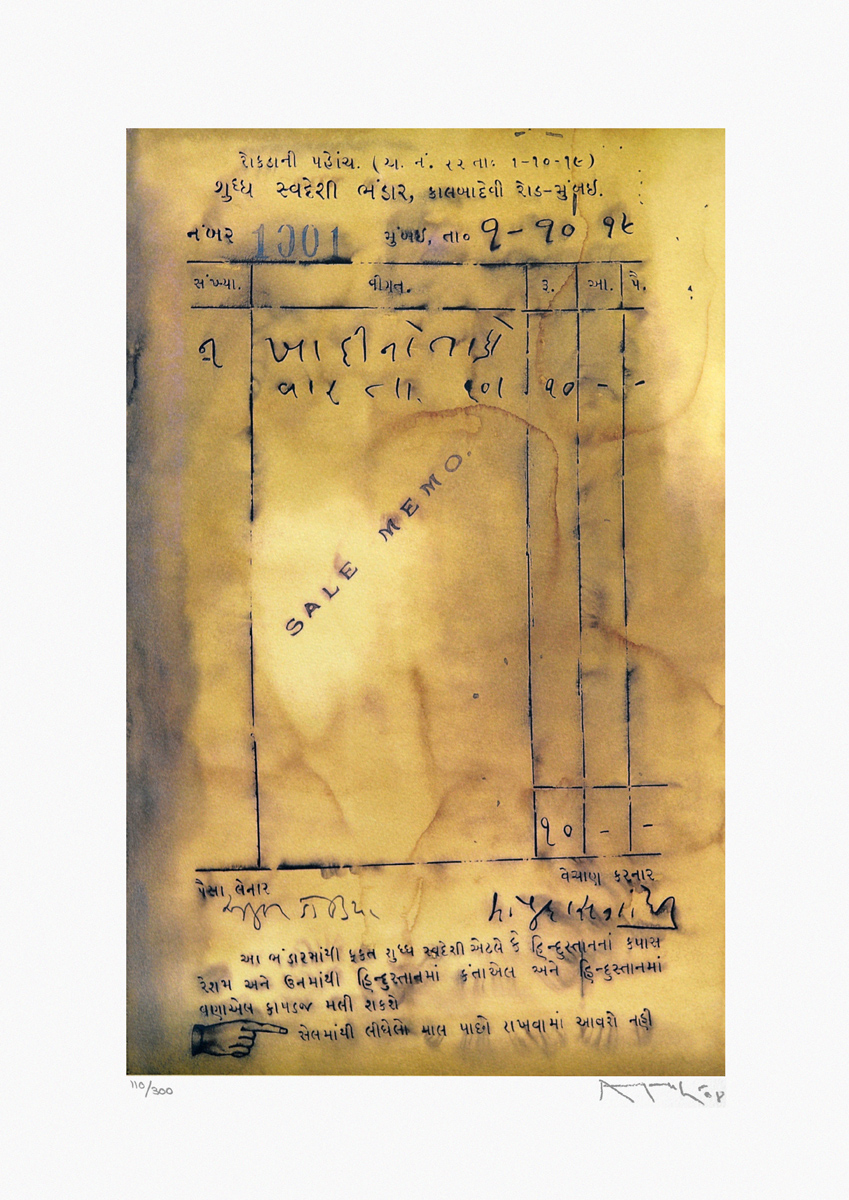 રોકડાની પહોંચ. (અ. નં. ૨૨ તાઃ ૧-૧૦-૧૯)
શુધ્ધ સ્વદેશી ભંડાર, કાલબાદેવી રોડ-મુંબઇ.
નંબર 1001 મુંબઇ, તા૦ ૧-૧૦ ૧૯
સંખ્યા. વીગત. રૂ. આ. પૈ.
૧ ખાદીનો તાકો
વાર તા. ૧૦ - -
SALE MEMO.
૧૦ - -
પૈસા લેનાર વેચાણ કરનાર
આ ભંડારમાંથી ફકત શુધ્ધ સ્વદેશી એટલે કે હિન્દુસ્તાનનાં કપાસ
રેશમ અને ઉનમાંથી હિન્દુસ્તાનમાં કંતાએલ અને હિન્દુસ્તાનમાં
વણાએલ કાપડજ મલી શકશે
સેલમાંથી લીધેલો માલ પાછો રાખવામાં આવશે નહી
110/300